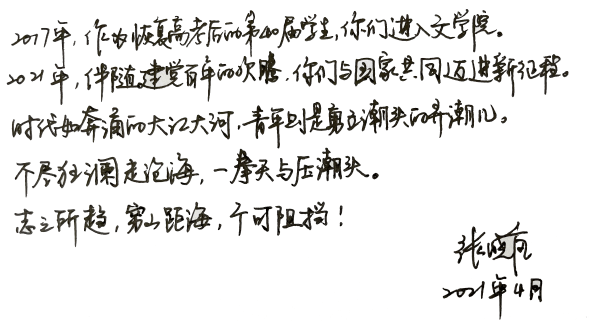 2017年，作为恢复高考后的第40届学生，你们进入文学院。
2021年，伴随建党百年的欢腾，你们与国家共同迈进新征程。
时代如奔涌的大江大河，青年则是勇立潮头的弄潮儿。
不尽狂澜走沧海，一拳天与压潮头。
志之所趋，穷山距海，不可阻挡！
张晓
2021年4月